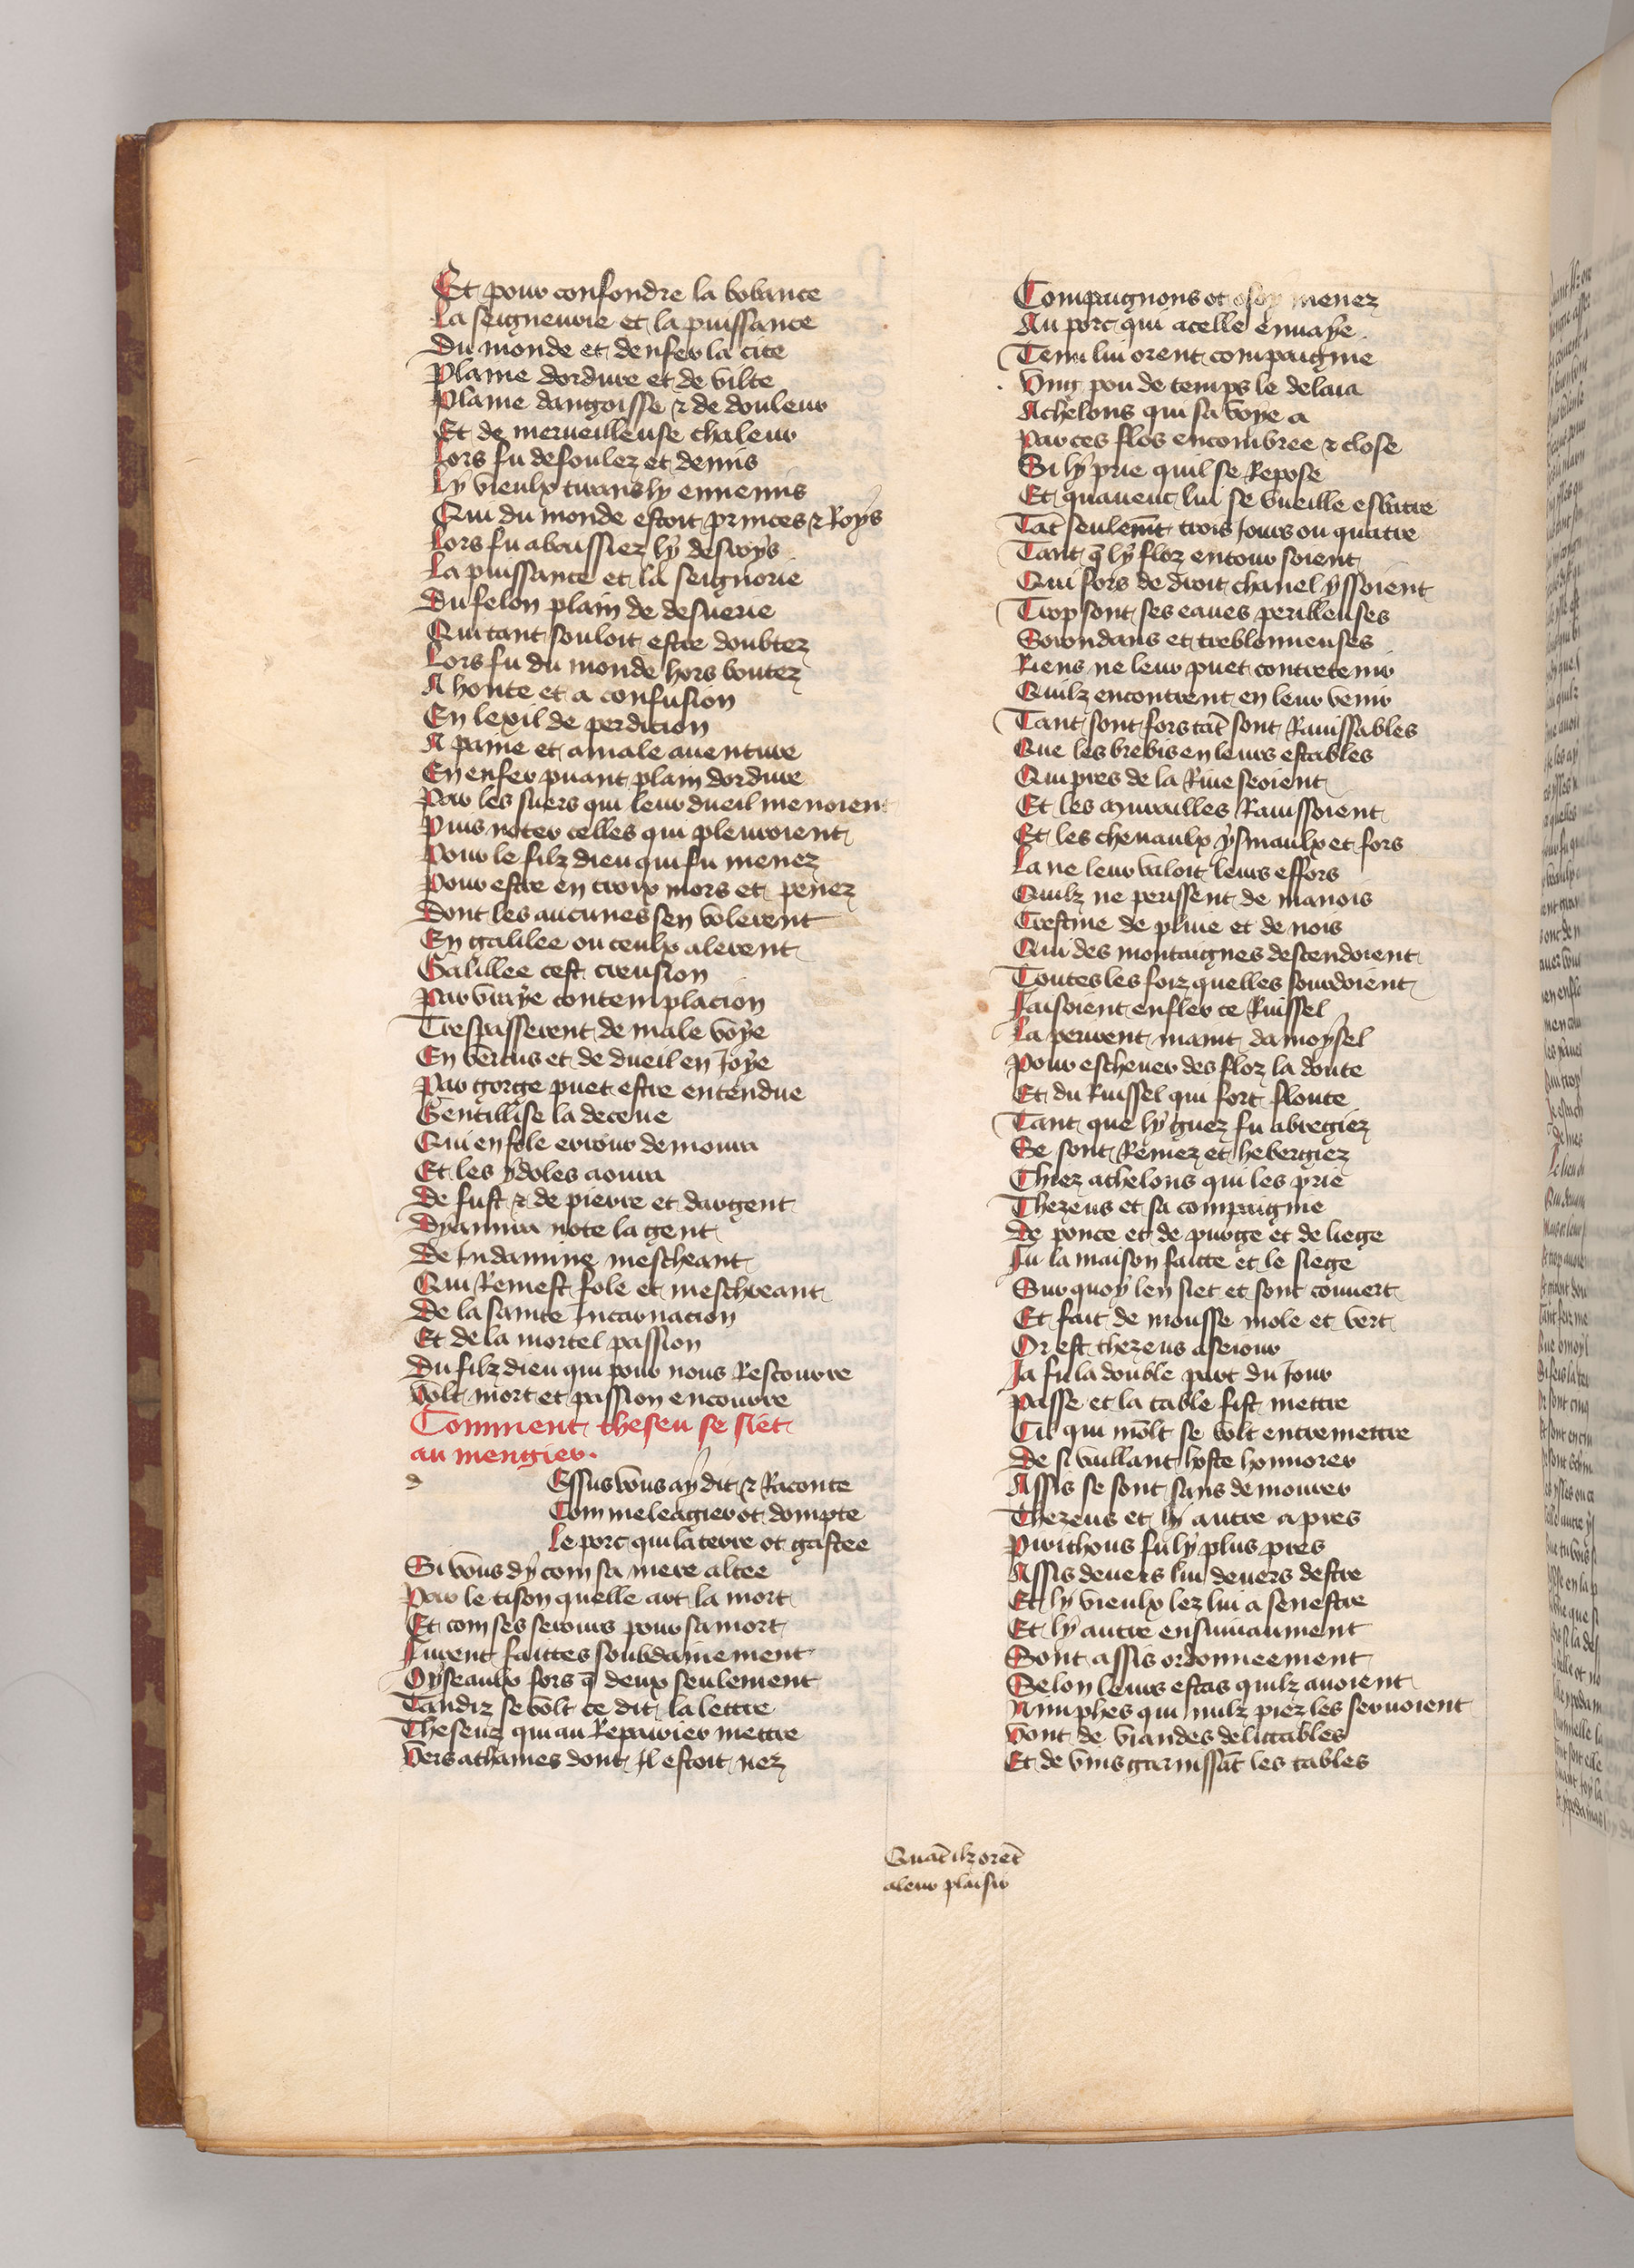 Et pour confondre la bobance
La seigneurie et la puissance
Du monde et denfer la cite
Plaine dordure et de vilte
Plaine dangoisse ⁊ de douleur
Et de merueilleuse chaleur
Lors fu defoulez et demis
Ly vieulx tirans ly ennemis
Qui du monde estoit princes ⁊ Roys
Lors fu abaissiez ly desroys
La puissance et la seignorie
Du felon plain de desuerie
Qui tant souloit estre doubtez
Lors fu du monde hors boutez
A honte et a confusion
En lexil de perdicion
A paine et a male auenture
En enfer puant plain dordure
Par les suers qui leur dueil menoient
Puis noter celles qui plouroient
Pour le filz dieu qui fu menez
Pour estre en croix mors et penez
Dont les aucunes sen volerent
En galilee ou ceulx alerent
Galillee cest
Par vraye contemplacion
Trespasserent de male voye
En vertus et de dueil en Joye
Par gorge puet estre entendue
Gentillise la deceue
Qui en fole errour demoura
Et les ydoles aoura
De fust ⁊ de pierre et dargent
Dyanira note la gent
De mescheant
Qui Remest fole et mescreant
De la sainte Incarnacion
Et de la mortel passion
Du filz dieu qui pour nous Rescourre
Volt mort et passion encourre
Comment theseu se siet
au mengier.
d
Essus vous ay dit ⁊ Raconte
Comme leagier ot dompte
Le porc qui la terre ot gastee
Si vous dy com sa mere altee
Par le tison quelle art la mort
Et com ses serours pour sa mort
Furent faittes soubdainement
Oyseaulx fors q̄ deux seulement
Tandiz se volt ce dit la lettre
Theseuz qui au Repairier mettre
Vers athaines dont Il estoit nez
Compaignons ot menez
Au porc qui acelle enuaye
Tenu lui orent compaignie
Vng pou de temps le delaia
Achelous qui sa voye a
Par ces flos encombree ⁊ close
Si ly prie quil se Repose
Et quauent lui se vueille esbatre
Tāt seulemt̄ trois Jours ou quatre
Tant q̄ ly floz entour soient
Qui fors de droit chanel yssoient
Trop sont ses eaues perilleuses
Sorondans et
Riens ne leur puet contretenir
Quilz encontrent en leur venir
Tant sont fors tāt sont Rauissables
Que les brebis en leurs estables
Qui pres de la Riue seoient
Et les Rauissoient
Et les cheuaulx ysniaulx et fors
La ne leur valoit leurs effors
Quilz ne perissent de manois
de pluie et de nois
Qui des montaignes descendoient
Toutes les foiz quelles sourdoient
Faisoient enfler ce Ruissel
La perirent maint damoysel
Pour escheuer des floz la doute
Et du Ruissel qui fort floute
Tant que ly guez fu abregiez
Se sont Remez et hebergiez
Chiez achelous qui les prie
Thezeus et sa compaignie
De ponce et de et de liege
Fu la maison faitte et le siege
Sur quoy len siet et sont couuert
Et fait de mousse mole et vert
Or est thezeus a seiour
Ja fu la double part du Jour
Passe et la table fist mettre
Cil qui mōlt se volt entremettre
De si vaillant hoste honnorer
Assis se sont sans demourer
Thezeus et ly autre apres
Pirithous fu ly plus pres
Assis deuers lui deuers destre
Et ly vieulx lez lui a senestre
Et ly autre ensuiuaument
Sont assis ordonneement
Selon leurs estas quilz auoient
Nimphes qui nulz piez les seruoient
Vont de viandes delitables
Et de vins garnissāt les tables
Quāt ilz orēt
a leur plaisir